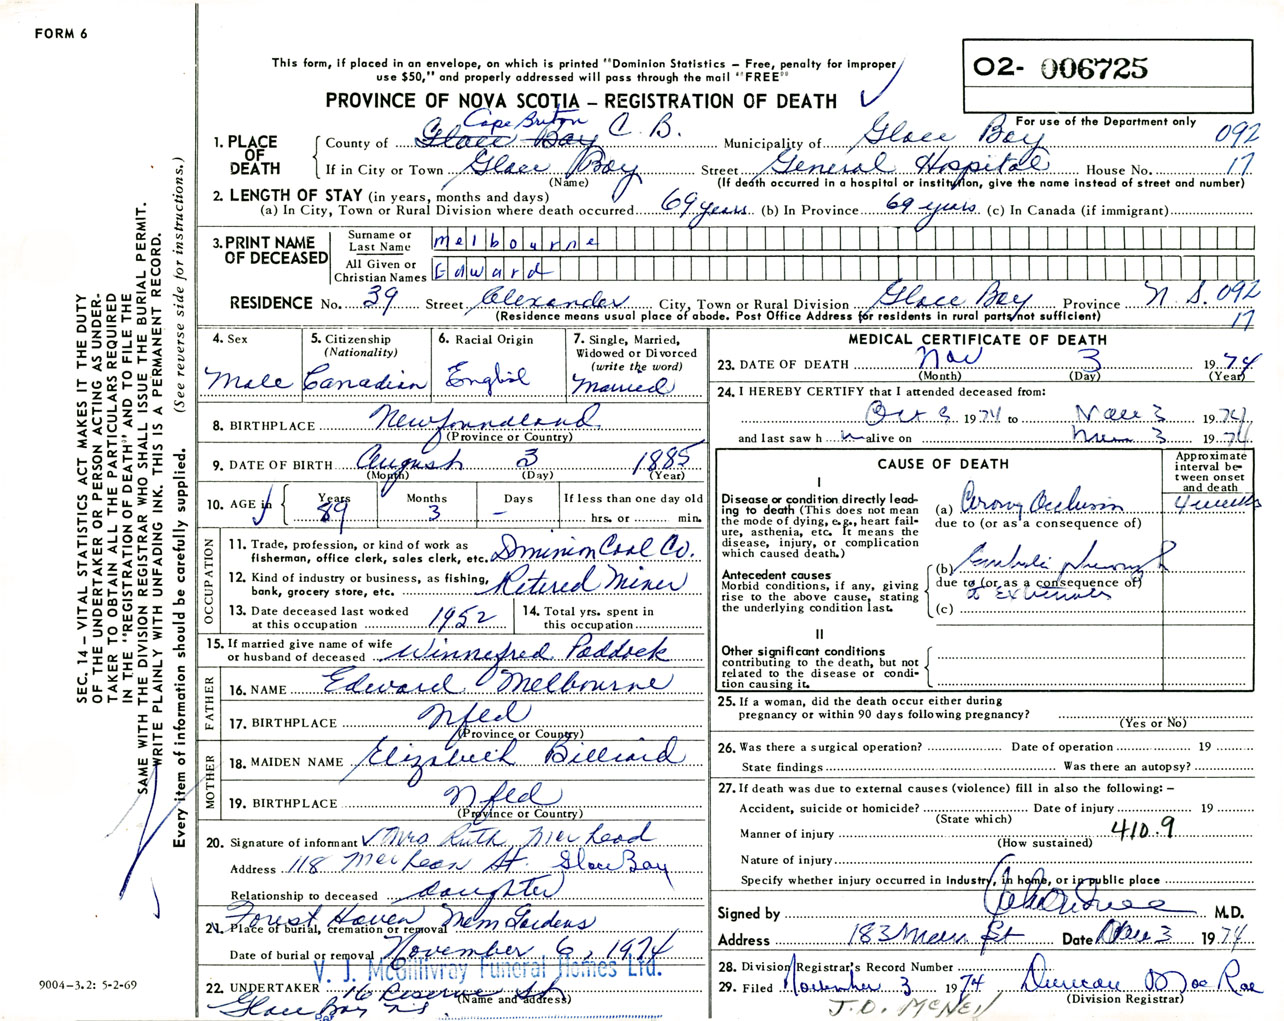 FORM 6
This form, if placed in an envelope, on which is printed "Dominion Statistics – Free, penalty for improper
use $50," and properly addressed will pass through the mail "FREE"
O2- 006725
PROVINCE OF NOVA SCOTIA – REGISTRATION OF DEATH
For use of the Department only
1. PLACE OF DEATH
County of Glace Bay Cape Breton C. B. Municipality of Glace Bay 092
If in City or Town Glace Bay Street General Hospital House No. 17
(Name) (If death occurred in a hospital or institution, give the name instead of street and number)
2. LENGTH OF STAY (in years, months and days)
(a) In City, Town or Rural Division where death occurred 69 years (b) In Province 69 years (c) In Canada (if immigrant)
3. PRINT NAME OF DECEASED
Surname or Last Name Melbourne
All Given or Christian Names Edward
RESIDENCE No. 39 Street Alexander City, Town or Rural Division Glace Bay Province N.S. 092
(Residence means usual place of abode. Post Office Address for residents in rural parts not sufficient) 17
4. Sex Male
5. Citizenship (Nationality) Canadian
6. Racial Origin English
7. Single, Married, Widowed or Divorced (write the word) Married
8. BIRTHPLACE Newfoundland
(Province or Country)
9. DATE OF BIRTH August 3 1885
(Month) (Day) (Year)
10. AGE in Years 89 Months 3 Days – If less than one day old hrs. or min.
OCCUPATION
11. Trade, profession, or kind of work as fisherman, office clerk, sales clerk, etc. Dominion Coal Co.
12. Kind of industry or business, as fishing, bank, grocery store, etc. Retired Miner
13. Date deceased last worked at this occupation 1952
14. Total yrs. spent in this occupation
15. If married give name of wife or husband of deceased Winnefred Paddock
FATHER
16. NAME Edward Melbourne
17. BIRTHPLACE Nfld
(Province or Country)
MOTHER
18. MAIDEN NAME Elizabeth Billiard
19. BIRTHPLACE Nfld
(Province or Country)
20. Signature of informant Mrs Ruth
Address 118 MacLean St. Glace Bay
Relationship to deceased daughter
21. Place of burial, cremation or removal Forest Haven Mem Gardens
Date of burial or removal November 6, 1974
V. J. McGillivray Funeral Homes Ltd.
22. UNDERTAKER 16 Reserve St
(Name and address)
Glace Bay NS
MEDICAL CERTIFICATE OF DEATH
23. DATE OF DEATH Nov 3 1974
(Month) (Day) (Year)
24. I HEREBY CERTIFY that I attended deceased from:
Oct 3 1974 to Nov 3 1974
and last saw h m alive on 3 1974
CAUSE OF DEATH
Approximate interval between onset and death
I
Disease or condition directly leading to death (This does not mean the mode of dying, e.g., heart failure, asthenia, etc. It means the disease, injury, or complication which caused death.)
(a) Occlusion 4 weeks
due to (or as a consequence of)
Antecedent causes
Morbid conditions, if any, giving rise to the above cause, stating the underlying condition last.
(b)
due to (or as a consequence of)
to Extremities
(c)
II
Other significant conditions
contributing to the death, but not related to the disease or condition causing it.
25. If a woman, did the death occur either during pregnancy or within 90 days following pregnancy?
(Yes or No)
26. Was there a surgical operation? Date of operation 19
State findings Was there an autopsy?
27. If death was due to external causes (violence) fill in also the following: –
Accident, suicide or homicide? Date of injury 19
(State which)
Manner of injury 410.9
(How sustained)
Nature of injury
Specify whether injury occurred in Industry, in home, or in public place
Signed by M.D.
Address 183 Main St Date Nov 3 1974
28. Division Registrar's Record Number
29. Filed November 3 1974 Duncan MacRae
(Division Registrar)
J.D. McNeil
SEC. 14 – VITAL STATISTICS ACT MAKES IT THE DUTY
OF THE UNDERTAKER OR PERSON ACTING AS UNDER-
TAKER TO OBTAIN ALL THE PARTICULARS REQUIRED
IN THE "REGISTRATION OF DEATH" AND TO FILE THE
SAME WITH THE DIVISION REGISTRAR WHO SHALL ISSUE THE BURIAL PERMIT.
WRITE PLAINLY WITH UNFADING INK. THIS IS A PERMANENT RECORD.
Every item of information should be carefully supplied. (See reverse side for instructions.)
9004–3.2: 5-2-69